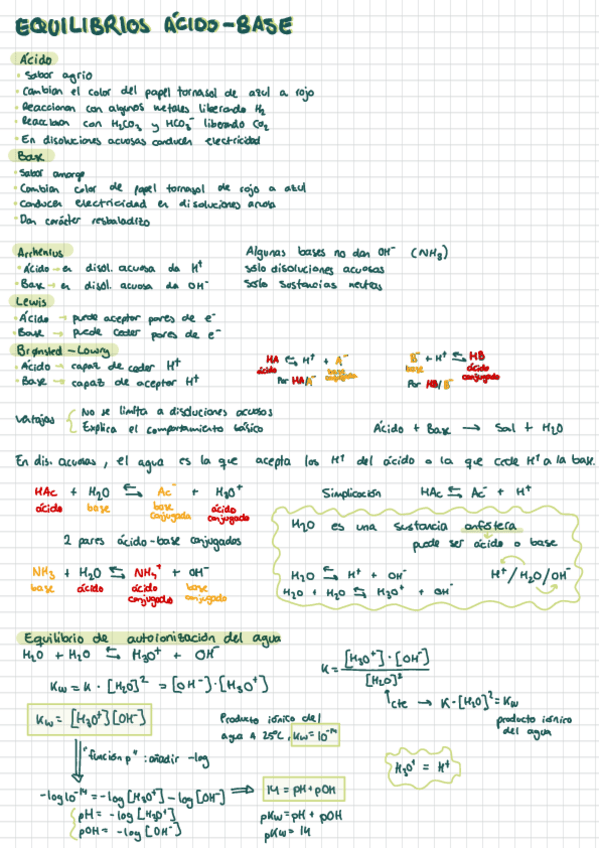 EQUILIBRIOS ÁCIDO-BASE
Ácido
· Sabor agrio
· Cambian el color del papel tornasol de azul a rojo
· Reaccionan con algunos metales liberando H₂
· Reaccionan con H₂CO₃ y HCO₃⁻ liberando CO₂
· En disoluciones acuosas conducen electricidad
Base
· Sabor amargo
· Cambian color de papel tornasol de rojo a azul
· Conducen electricidad en disoluciones acuosa
· Dan carácter resbaladizo
Arrhenius
· Ácido → en disol. acuosa da H⁺
· Base → en disol. acuosa da OH⁻
Algunas bases no dan OH⁻ (NH₃)
sólo disoluciones acuosas
Sólo sustancias neutras
Lewis
· Ácido → puede aceptar pares de e⁻
· Base → puede ceder pares de e⁻
Brønsted-Lowry
· Ácido → capaz de ceder H⁺
· Base → capaz de aceptar H⁺
HA ⇆ H⁺ + A⁻
ácido base conjugada
Par HA/A⁻
B⁻ + H⁺ ⇆ HB
base ácido conjugado
Par HB/B⁻
Ventajas { No se limita a disoluciones acuosas
Explica el comportamiento básico
Ácido + Base → Sal + H₂O
En dis. acuosas, el agua es la que acepta los H⁺ del ácido o la que cede H⁺ a la base.
HAc + H₂O ⇆ Ac⁻ + H₃O⁺
ácido base base conjugada ácido conjugado
Simplificación HAc ⇆ Ac⁻ + H⁺
2 pares ácido-base conjugados
NH₃ + H₂O ⇆ NH₄⁺ + OH⁻
base ácido ácido conjugado base conjugada
H₂O es una sustancia anfótera
puede ser ácido o base
H₂O ⇆ H⁺ + OH⁻ H⁺/H₂O/OH⁻
H₂O + H₂O ⇆ H₃O⁺ + OH⁻
Equilibrio de autoionización del agua
H₂O + H₂O ⇆ H₃O⁺ + OH⁻
K = [H₃O⁺]·[OH⁻] / [H₂O]²
Kw = K · [H₂O]² = [OH⁻]·[H₃O⁺]
cte → K·[H₂O]² = Kw
producto iónico
del agua
Kw = [H₃O⁺][OH⁻]
Producto iónico del
agua a 25ºC, Kw = 10⁻¹⁴
"función p": añadir -log
H₃O⁺ = H⁺
-log10⁻¹⁴ = -log[H₃O⁺] - log[OH⁻] ⇒ 14 = pH + pOH
pH = -log[H₃O⁺]
pOH = -log[OH⁻]
pKw = pH + pOH
pKw = 14